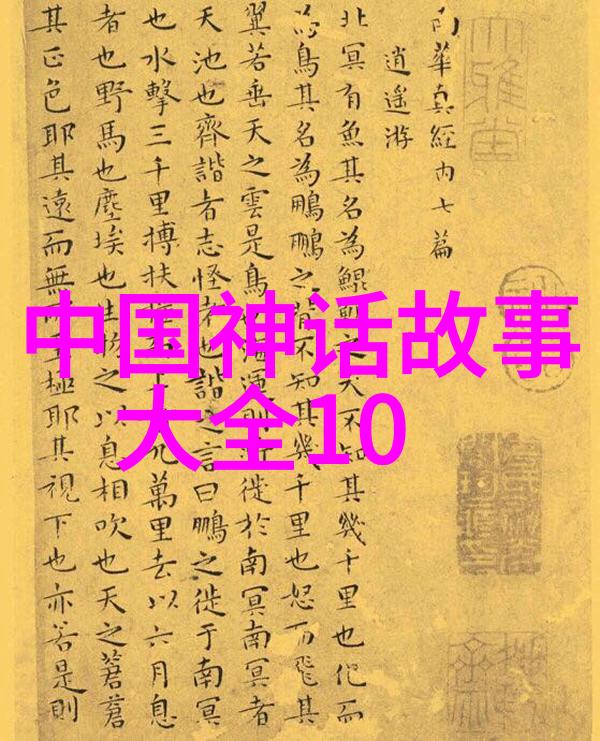 中国神话故事
大全10
南華真經內七篇
逍遙游
北冥有魚其名為鯤鯤之大不知其幾千里也化而
為鳥其名為鵬鵬之背不知其幾千里也怒而飛其
翼若垂天之雲是鳥也海運則將徙於南冥南冥者
天池也齊諧者志怪者也諧之言曰鵬之徙于南冥
也水擊三千里搏扶搖而上九萬里去以六月息
者也野馬也塵埃也生物之以息相吹也天之蒼蒼
其正色耶其遠而無所至極耶其視下也亦若是則